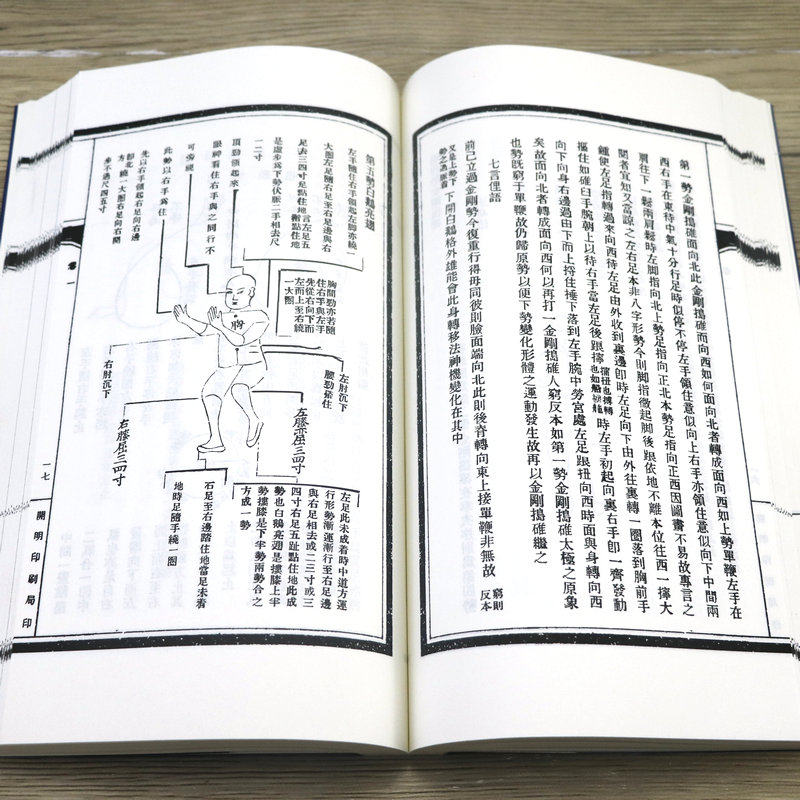 第一勢金剛搗碓面向北此金剛搗碓而向西如何面向北者轉成面向西如上勢單鞭左手在
西右手在東待中氣十分行足時似停不停左手領住意似向上右手亦領住意似向下中間兩
肩往下一鬆兩肩鬆時左脚指向北上勢足指向正北本勢足指向正西因圖畫不易故專言之
閱者宜知又當設之左右足本非八字形勢今則脚指微起脚後跟依地不離本位往西一擰大
鍾使左足指轉過來向西待左足由外收到裏邊卽時左足向下由外往裏轉一圈落到胸前手
摳住如碓臼手腕朝上以待右手當左足後跟擰
時左手初起向裏右手卽一齊發動
向下向身右邊過由下而上捋住捶下落到左手腕中勞宮處左足跟扭向西時面與身轉向西
矣故面向北者轉成面向西何以再打一金剛搗碓人窮反本如第一勢金剛搗碓太極之原象
也勢旣窮于單鞭故仍歸原勢以便下勢變化形體之運動發生故再以金剛搗碓繼之
七言俚語
前已立過金剛勢今復重行得毋同彼則臉面端向北此則後脊轉向東上接單鞭非無故
窮則
反本
又是上勢下
下開白鵝格外雄能會此身轉移法神機變化在其中
第五勢白鵝亮翅
左手隨住右手領起左脚亦繞一
大圈左足隨右足至右足邊與右
足去三四寸足點住地
是虛步爲下勢伏脈二手相去尺
一二寸
頂勁領起來
眼神看住右手與之同行不
可旁視
此勢以右手爲住
先以右手領起右足向右邊
卸北繞一大圈右足向右開
步不過尺四五寸
胸間勁亦若隨
住右手與左手
先從右向下而
左而上至右繞
一大圈
胸
左肘沉下
腰勁搽住
右肘沉下
左膝亦屈三四寸
右膝屈三四寸
左足此未成着時中道方運
行形勢漸運漸行至右足邊
與右足相去或二三寸或三
四寸右足五趾點住地此成
勢也白鵝亮翅是摟膝上半
勢摟膝是下半勢兩勢合之
方成一勢
右足至右邊踏住地當足未着
地時足隨手繞一圈
卷一
一七
開明印刷局印